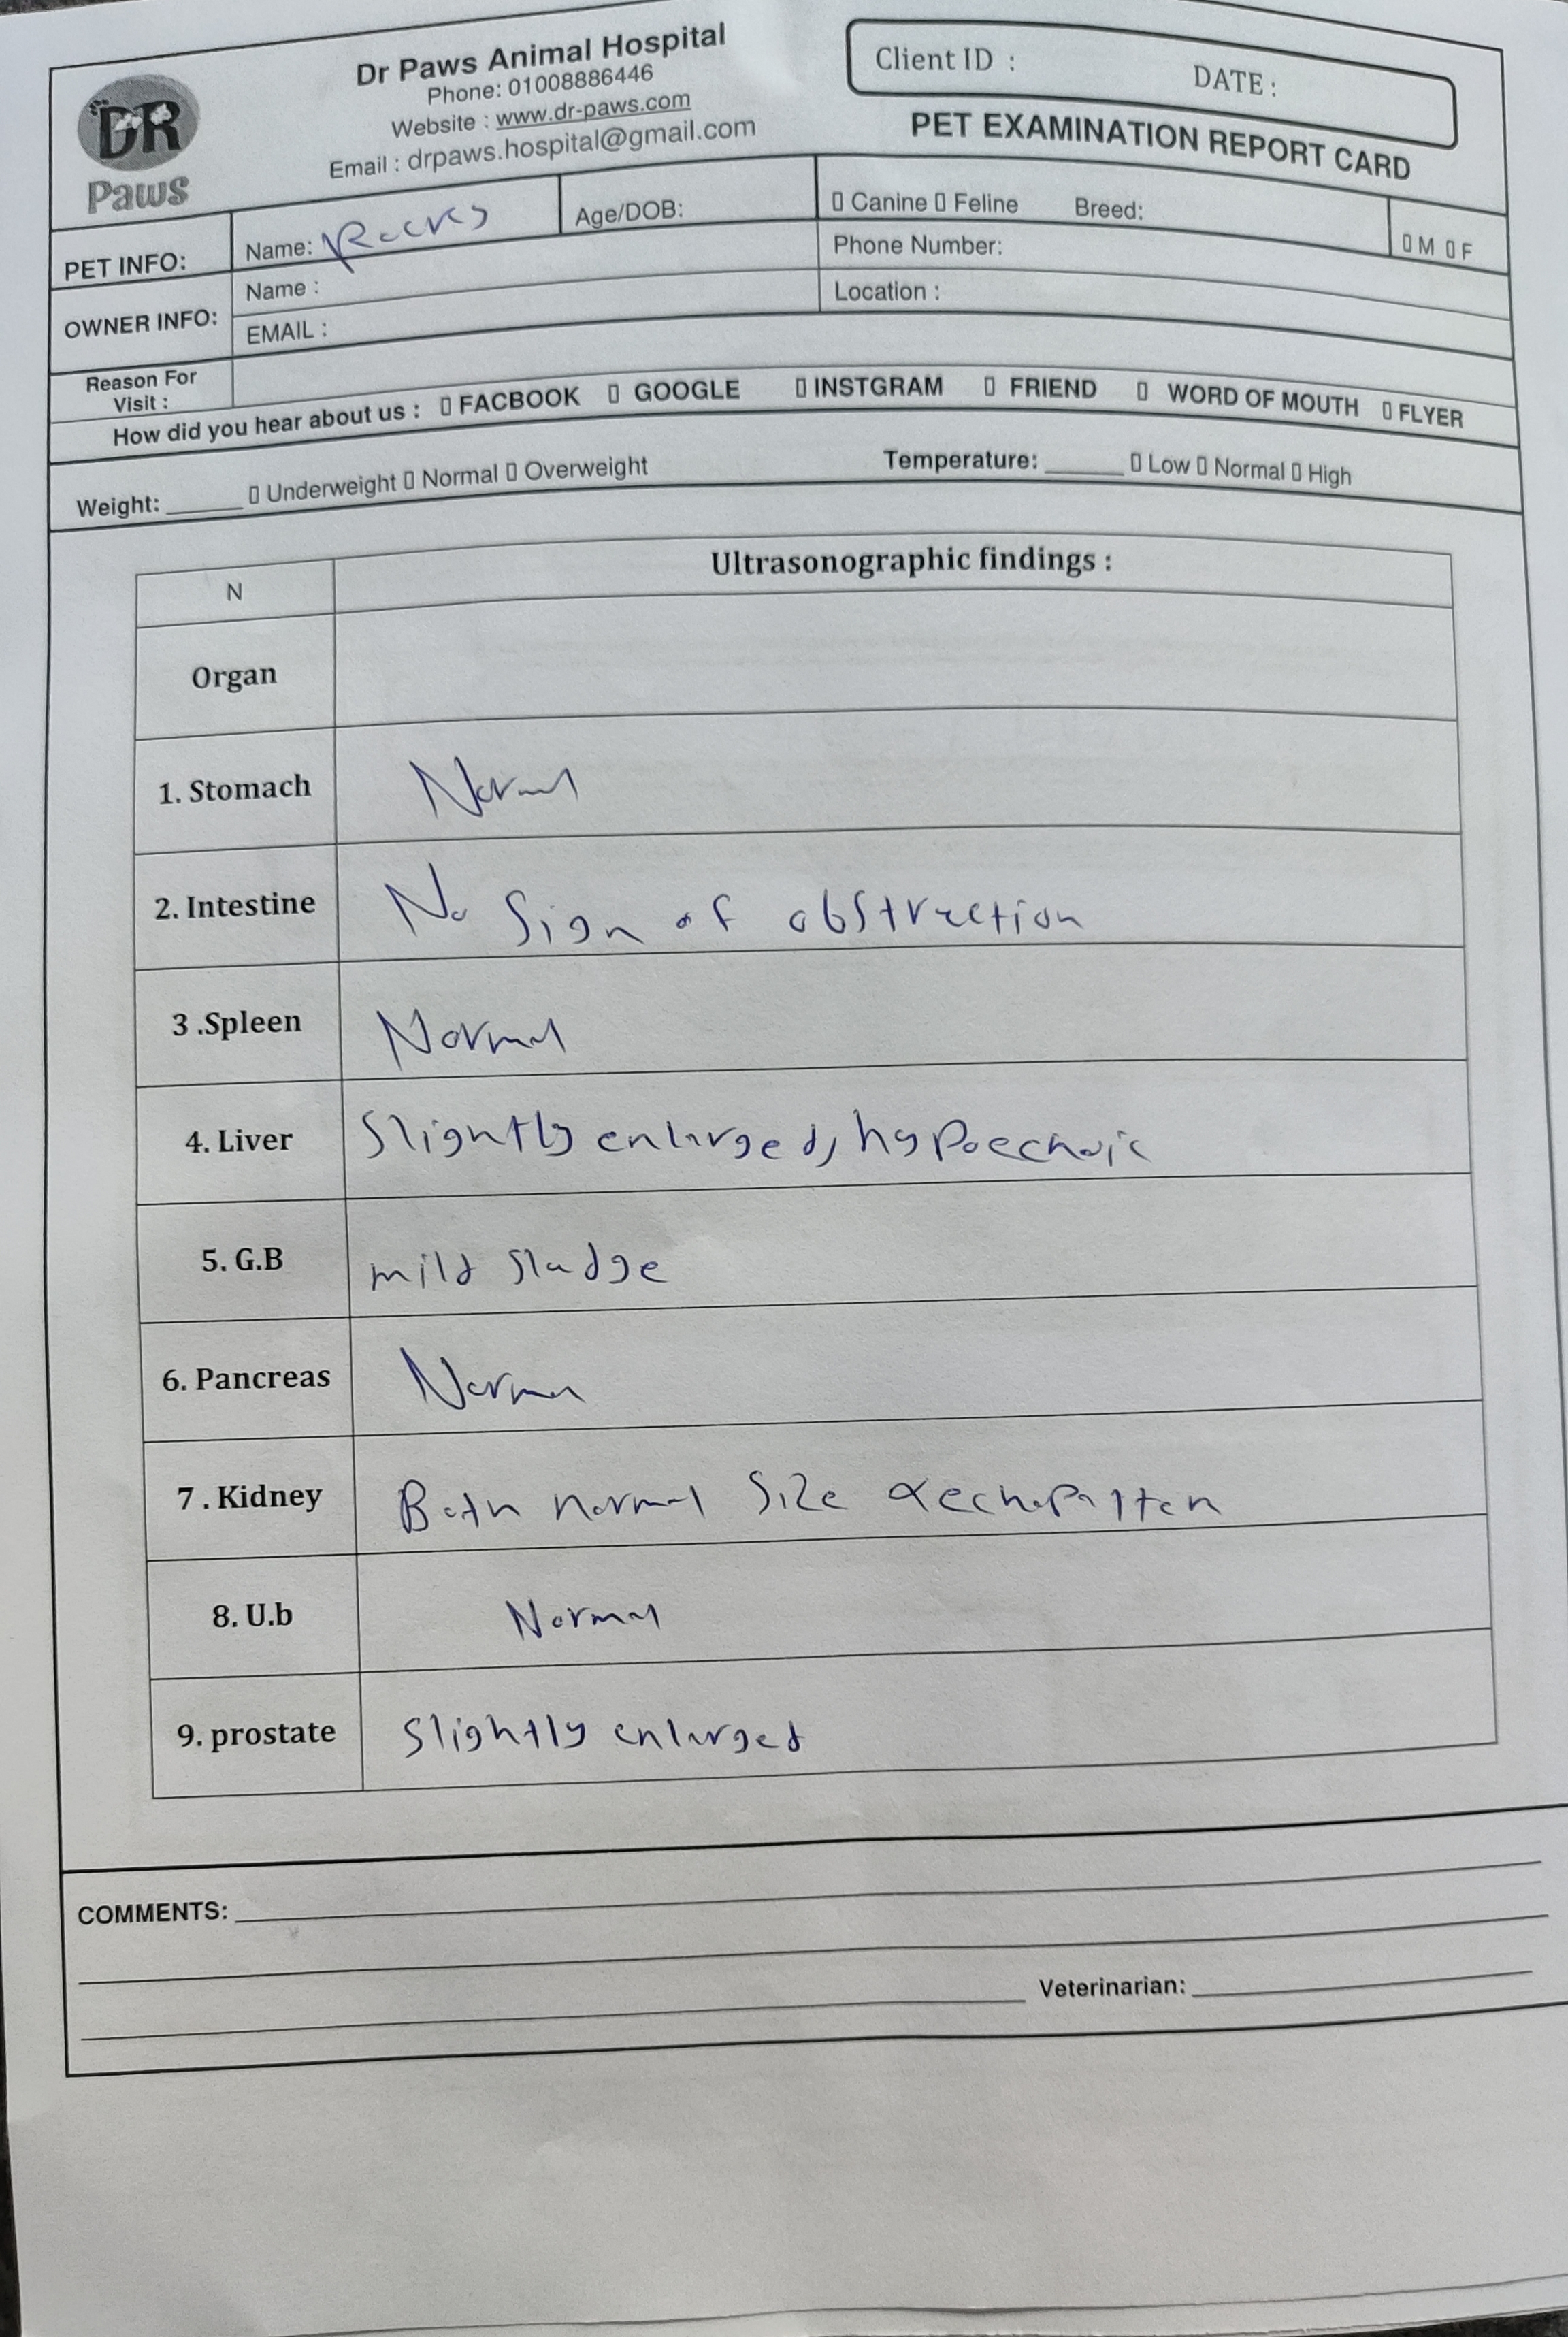 DR
Paws
Dr Paws Animal Hospital
Phone: 01008886446
Website : www.dr-paws.com
Email : drpaws.hospital@gmail.com
Client ID : DATE :
PET EXAMINATION REPORT CARD
PET INFO: Name: Age/DOB: ▯ Canine ▯ Feline Breed: ▯ M ▯ F
OWNER INFO: Name : Phone Number:
EMAIL : Location :
Reason For
Visit :
How did you hear about us : ▯ FACBOOK ▯ GOOGLE ▯ INSTGRAM ▯ FRIEND ▯ WORD OF MOUTH ▯ FLYER
Weight: ______ ▯ Underweight ▯ Normal ▯ Overweight Temperature: ______ ▯ Low ▯ Normal ▯ High
N Ultrasonographic findings :
Organ
1. Stomach Normal
2. Intestine No Sign of obstruction
3 .Spleen Normal
4. Liver Slightly enlarged, hypoechoic
5. G.B mild sludge
6. Pancreas Normal
7 . Kidney Both normal Size & echopatten
8. U.b Normal
9. prostate Slightly enlarged
COMMENTS:
Veterinarian: